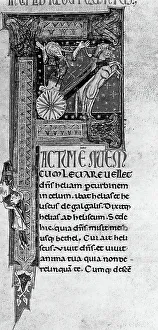 FACTUM EST AUTEM
CUM LEVARE VELLET
dns heliam p turbinem
in celum. ibat helias et he
liseus de galgalis. Dixitq;
helias ad heliseum. Sede
hic. quia dns misit me us
usq; bethel. Cui ait heli
seus. Vivit dns et vivit
anima tua quia non de
relinquam te. Cumq; descen